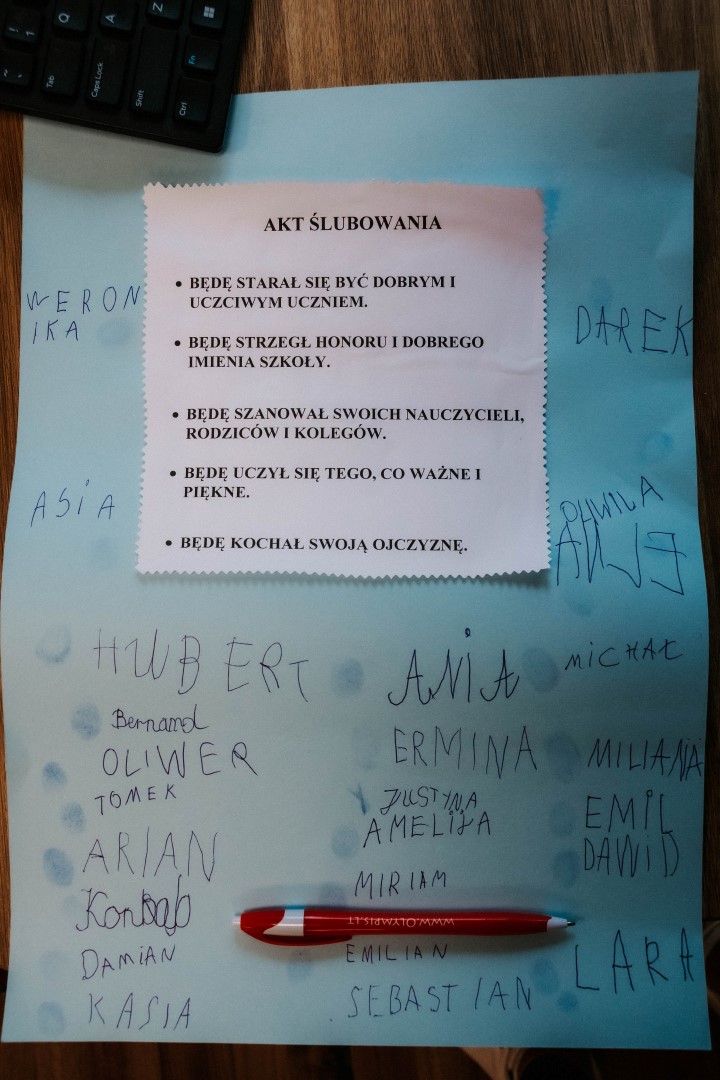 Q
A
Z
Tab
Caps Lock
Shift
Fn
Ctrl
AKT ŚLUBOWANIA
• BĘDĘ STARAŁ SIĘ BYĆ DOBRYM I
UCZCIWYM UCZNIEM.
• BĘDĘ STRZEGŁ HONORU I DOBREGO
IMIENIA SZKOŁY.
• BĘDĘ SZANOWAŁ SWOICH NAUCZYCIELI,
RODZICÓW I KOLEGÓW.
• BĘDĘ UCZYŁ SIĘ TEGO, CO WAŻNE I
PIĘKNE.
• BĘDĘ KOCHAŁ SWOJĄ OJCZYZNĘ.
WERON
IKA
DAREK
ASiA
HUBERT
ANiA
MiCHAŁ
Bernard
OLIWER
ERMINA
MILIANA
TOMEK
JUSTYNA
EMiL
AMELIJA
DAWID
ARIAN
MIRIAM
WWW.OLYMPIS.LT
DAMIAN
EMILIAN
LARA
KASIA
SEBASTIAN